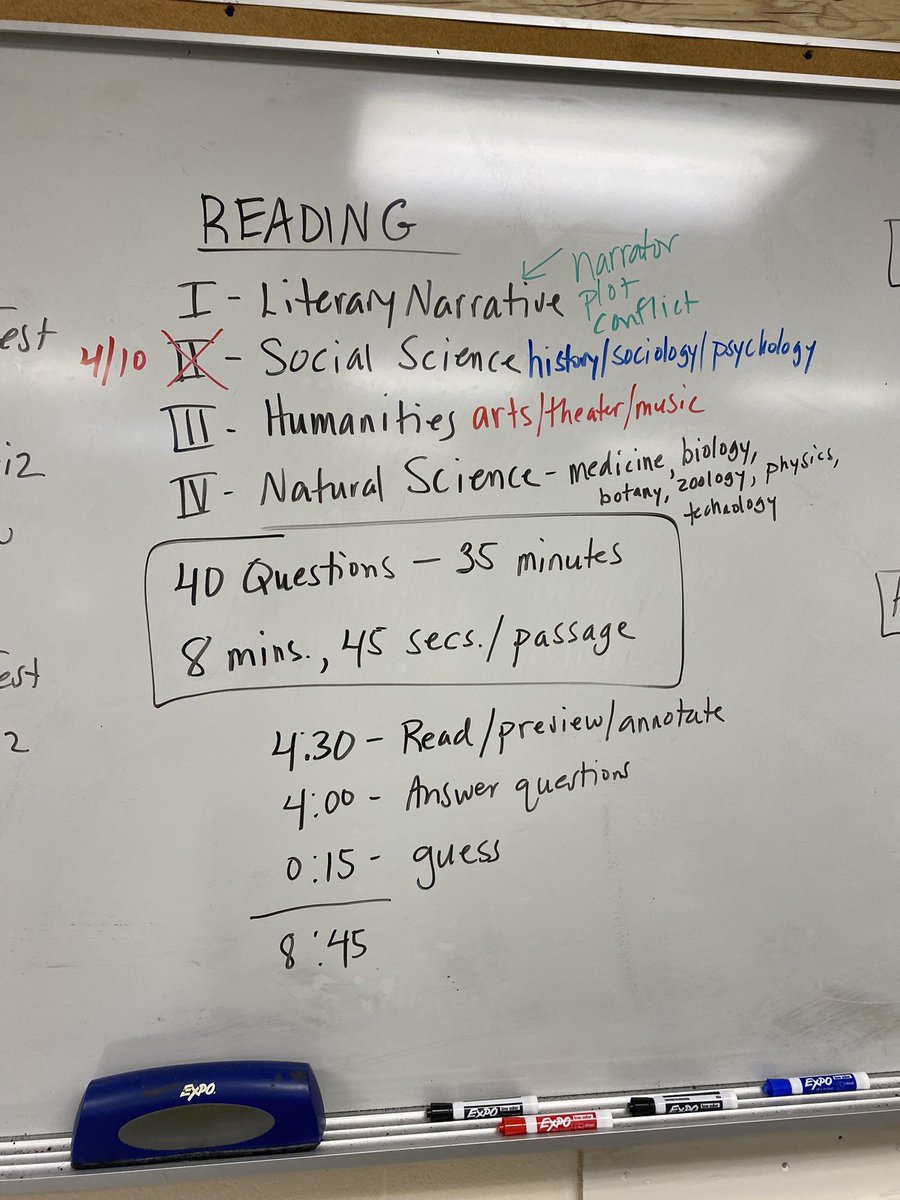 READING
I - Literary Narrative
narrator
plot
conflict
4/10 II - Social Science history/sociology/psychology
III - Humanities arts/theater/music
IV - Natural Science - medicine, biology,
botany, zoology, physics,
technology
40 Questions - 35 minutes
8 mins., 45 secs./passage
4:30 - Read/preview/annotate
4:00 - Answer questions
0:15 - guess
8:45
est
i2
est
2
EXPO
EXPO
EXPO
EXPO
EXPO